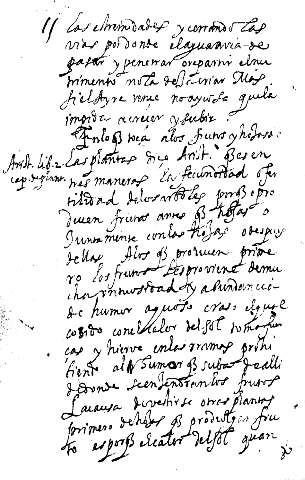 las estremidades y cerrando las
vias por donde el agua avia de
pasar y penetrar o repartir el nu
trimento no la dexa criar Mas
si el Ayre vence no ay cosa que la
impida a crecer y subir
En lo q toca a los frutos y hojas de
las plantas dize Arist. q es en
Arist. lib. 2.
cap. de plantis
tres maneras la fecundidad o fer
tilidad de los arboles porq o pro
duzen frutos antes q hojas o
Juntamente con las hojas o despues
dellas. A los q produzen prime
ro los frutos les proviene de mu
cha untuosidad y abundancia
de humor aquoso craso el qual
cozido con el calor del Sol
y hierve en las ramas prohi
al humor q suba de alli
de donde se engendran los frutos
La causa de vestirse otras plantas
primero de hojas q produzcan fru
to es porq el calor del Sol quan